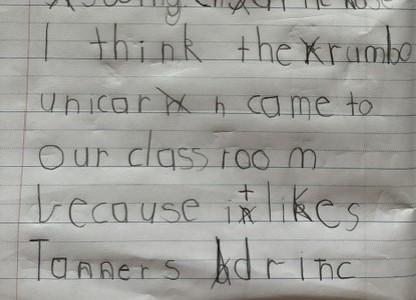 I think the krumbo
unicarn come to
our classroom
because it likes
Tanners drinc